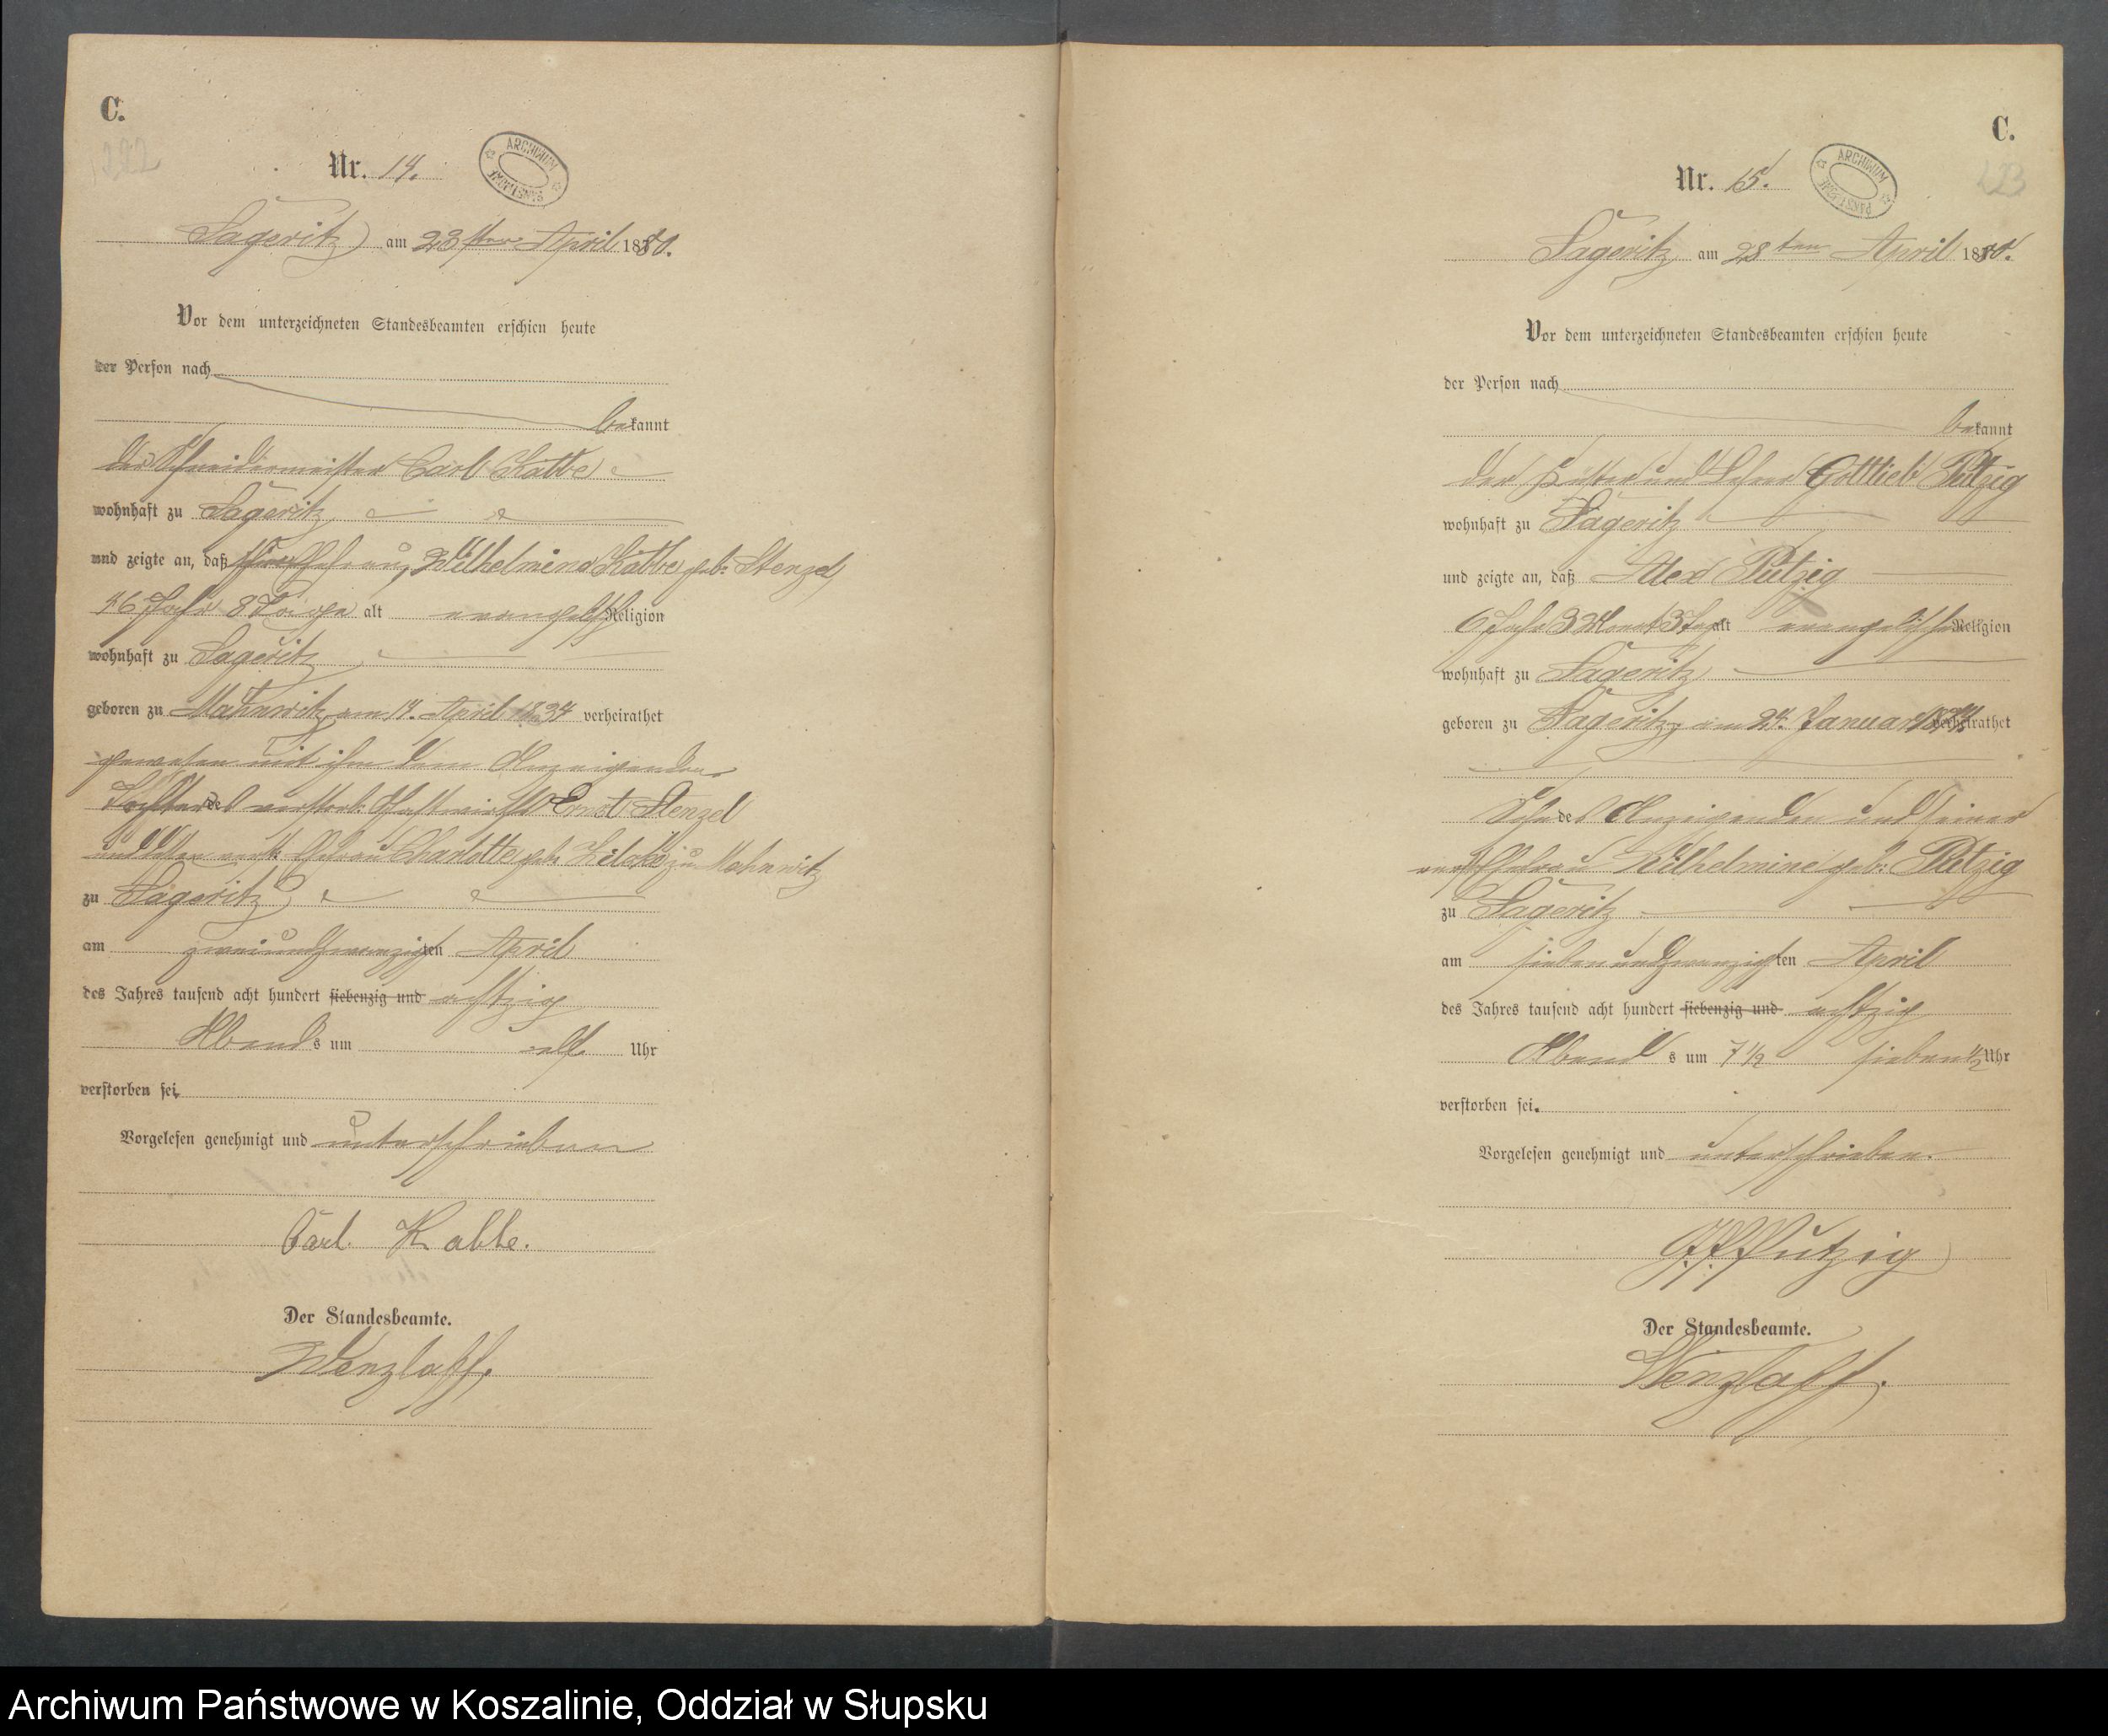 C.
222
Nr. 14.
ARCHIWUM PAŃSTWOWE
Sageritz am 23sten April 1880.
Vor dem unterzeichneten Standesbeamten erschien heute
der Person nach
bekannt
der Schneidermeister Carl Kabbe
wohnhaft zu Sageritz
und zeigte an, daß seine Ehefrau, Wilhelmine Kabbe geb: Stenzel
46 Jahr 8 Tage alt evangelisch Religion
wohnhaft zu Sageritz
geboren zu Mahnwitz am 14. April 1834 verheirathet
gewesen mit ihm dem Anzeigenden
Tochter des verstorb: Gastwirths Ernst Stenzel
und dessen verst: Ehefrau Charlotte geb: zu Mahnwitz
zu Sageritz
am zweiundzwanzigsten April
des Jahres tausend acht hundert siebenzig und achtzig
Abends um elf Uhr
verstorben sei
Vorgelesen genehmigt und unterschrieben
Carl Kabbe.
Der Standesbeamte.
Wenzlaff.
C.
223
Nr. 15.
ARCHIWUM PAŃSTWOWE
Sageritz am 28ten April 1880.
Vor dem unterzeichneten Standesbeamten erschien heute
der Person nach
bekannt
der Küster und Lehrer Gottlieb Putzig
wohnhaft zu Sageritz
und zeigte an, daß Alex Putzig
6 Jahr 3 Monat 3 Tag alt evangelischer Religion
wohnhaft zu Sageritz
geboren zu Sageritz, am 24. Januar 1874. verheirathet
Sohn des Anzeigenden und seiner
Ehefrau Wilhelmine geb: Putzig
zu Sageritz
am siebenundzwanzigsten April
des Jahres tausend acht hundert siebenzig und achtzig
Abends um 7 1/2 sieben 1/2 Uhr
verstorben sei.
Vorgelesen genehmigt und unterschrieben.
Putzig
Der Standesbeamte.
Wenzlaff.
Archiwum Państwowe w Koszalinie, Oddział w Słupsku